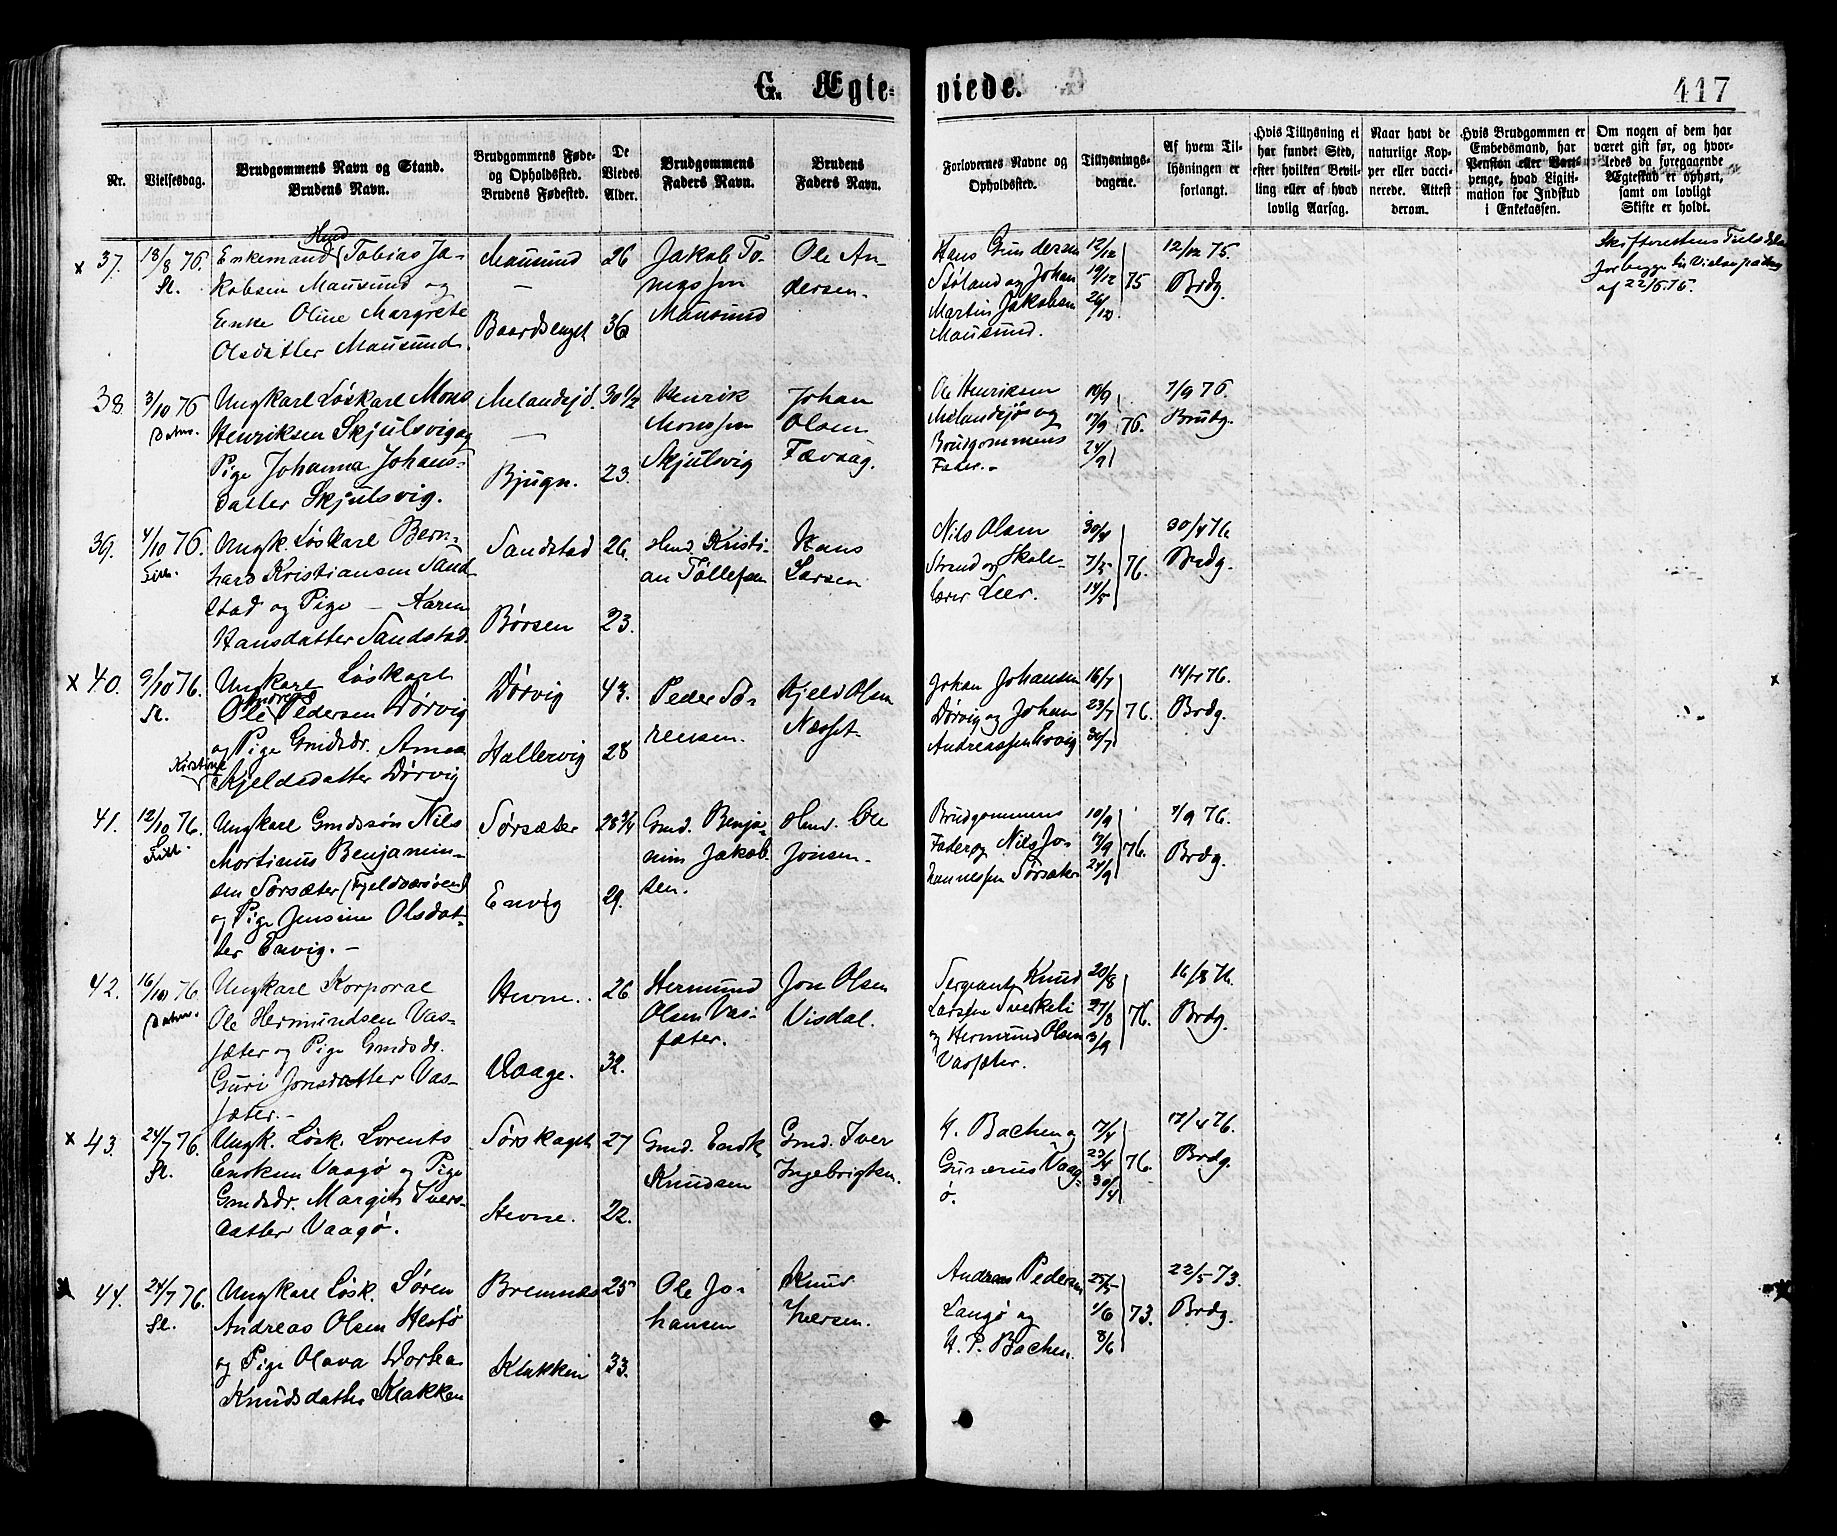 G. Ægteviede.
417
Nr.
Vielsesdag.
Brudgommens Navn og Stand.
Brudens Navn.
Brudgommens Føde-
og Opholdssted.
Brudens Fødested.
De
Viedes
Alder.
Brudgommens
Faders Navn.
Brudens
Faders Navn.
Forlovernes Navne og
Opholdssted.
Tillysnings-
dagene.
Af hvem Til-
lysningen er
forlangt.
Hvis Tillysning ei
har fundet Sted,
efter hvilken Bevil-
ling eller af hvad
lovlig Aarsag.
Naar havt de
naturlige Kop-
per eller vacci-
nerede. Attest
derom.
Hvis Brudgommen er
Embedsmand, har
Pension eller
penge, hvad Legiti-
mation for Indskud
i Enkekassen.
Om nogen af dem har
været gift før, og hvor-
ledes da foregaaende
Ægteskab er ophørt,
samt om lovligt
Skifte er holdt.
x 37.
18/8 76.
Sl.
Hmd
Enkemand Tobias Ja-
kobsen Mausund og
Enke Oline Margrete
Olsdatter Mausund.
Mausund
—
Baardsenget
26
36
Jakob To-
niassen
Mausund
Ole An-
dersen.
Hans Gundersen
Støland og Johan
Martin Jakobsen
Mausund.
12/12
19/12
26/12
75
12/12 75.
Brdg.
Skifterettens
forbygge
af 22/6 75.
38.
3/10 76
Ungkarl Løskarl Mons
Henriksen Skjulsvig og
Pige Johanna Johans-
datter Skjulsvig.
Melandsjø.
—
Bjugn.
30 1/2
23.
Henrik
Monssen
Skjulsvig
Johan
Olsen
Fævaag.
Ole Henriksen
Melandsjø og
Brudgommens
Fader.-
10/9
17/9
24/9
76.
7/9 76.
Brudg.
39.
4/10 76.
Fill.
Ungk. Løskarl Bern-
hard Kristiansen Sand-
stad og Pige — Karen
Hansdatter Sandstad.
Sandstad
Børsen
26.
23.
Hmd. Kristi-
an Tollefsen
Hans
Larsen
Nils Olsen
Strand og Skole-
lærer Leer.
30/4
7/5
14/5
76.
30/4 76
Brdg.
x 40.
9/10 76.
Sl.
Ungkarl Løskarl
Andreas
Ole Pedersen Dørvig
og Pige Gmdsdr. Anna
Kirstine
Kjeldsdatter Dørvig
Dørvig
Hallervig
43.
28
Peder Sø-
rensen.
Kjeld Olsen
Næsset
Johan Johansen
Dørvig og Johan
Andreassen
16/7
23/7
30/7
76.
14/7 76.
Brdg.
x
41.
12/10 76.
Fill.
Ungkarl Gmdssøn Nils
Mortinus Benjamin-
sen Sørsæter (Fjeldværsøen)
og Pige Jensine Olsdat-
ter Envig. —
Sørsæter
Envig
28 3/4
29.
Gmd. Benja-
min Jakob-
sen.
Hmd. Ole
Jonsen.
Brudgommens
Fader og Nils Jo-
hannessen Sørsæter
10/9
17/9
24/9
76.
7/9 76.
Brdg.
42.
16/10 76
Ungkarl Korporal
Ole Hermundsen Vas-
sæter og Pige Gmdsdr.
Guri Jonsdatter Vas-
sæter.-
Hevne.
Vaage.
26
32.
Hermund
Olsen Vas-
sæter.
Jon Olsen
Visdal.
Sergeant Knud
Larsen
og Hermund Olsen
Vassæter.
20/8
27/8
3/9
76.
16/8 76.
Brdg.
x 43.
24/7 76.
Sl.
Ungk. Løsk. Lorents
Eriksen Vaagø og Pige
Gmdsdr. Margit Ivers-
datter Vaagø.
Sørskaget
Hevne.
27
22.
Gmd. Erik
Knudsen
Gmd. Iver
Ingebrigtsen.
H. Bachen og
Gunerius Vaag-
ø.
17/4
23/4
30/4
76.
17/4 76.
Brdg.
x 44.
24/7 76.
Sl.
Ungkarl Løsk. Søren
Andreas Olsen Hestø
og Pige Olava Dortea
Knudsdatter Klakken
Bremnes
Klakken
25
33.
Ole Jo-
hansen
Knud
Iversen.
Andreas Pedersen
Langø og
H. P. Bachen.
25/5
1/6
8/6
73.
22/5 73.
Brdg.